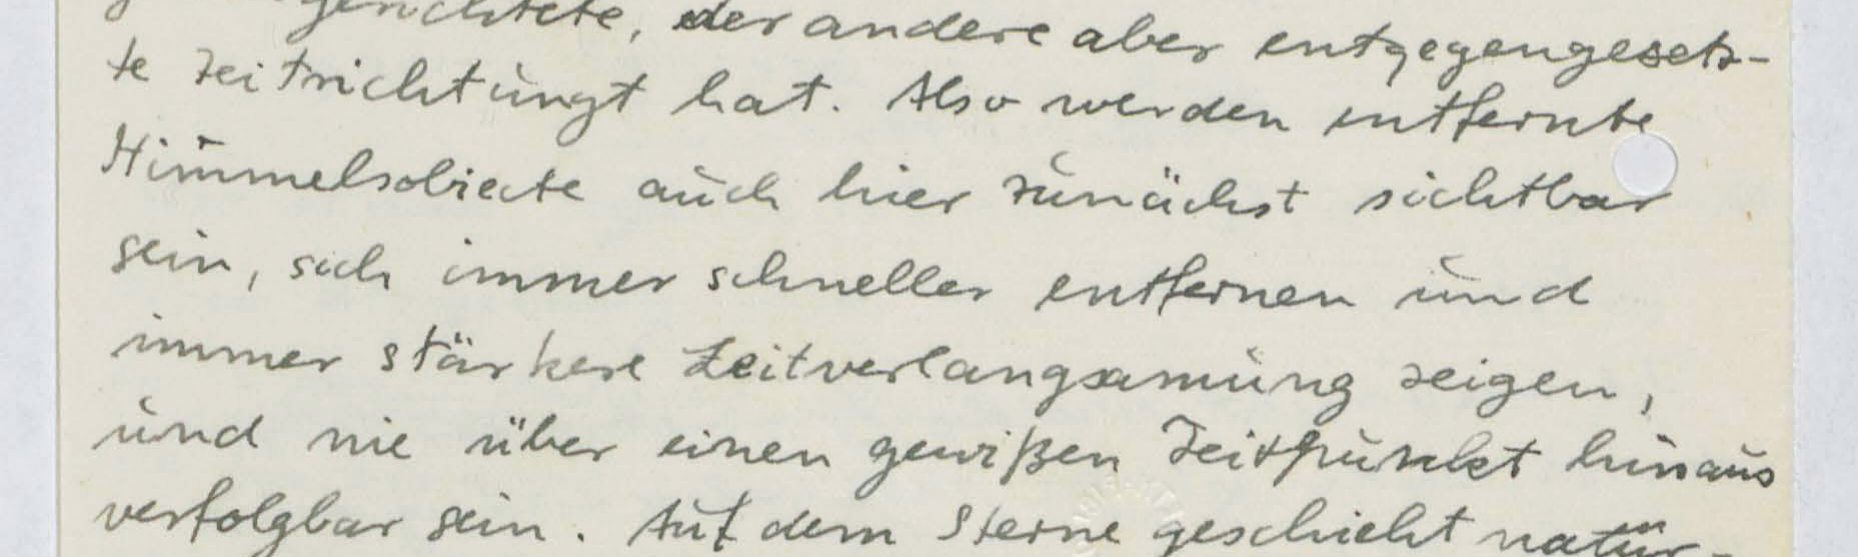 gerichtete, der andere aber entgegengesetz-
te Zeitrichtungt hat. Also werden entfernte
Himmelsobiecte auch hier zunächst sichtbar
sein, sich immer schneller entfernen und
immer stärkere Zeitverlangsamung zeigen,
und nie über einen gewißen Zeitpunkt hinaus
verfolgbar sein. Auf dem Sterne geschieht natür-